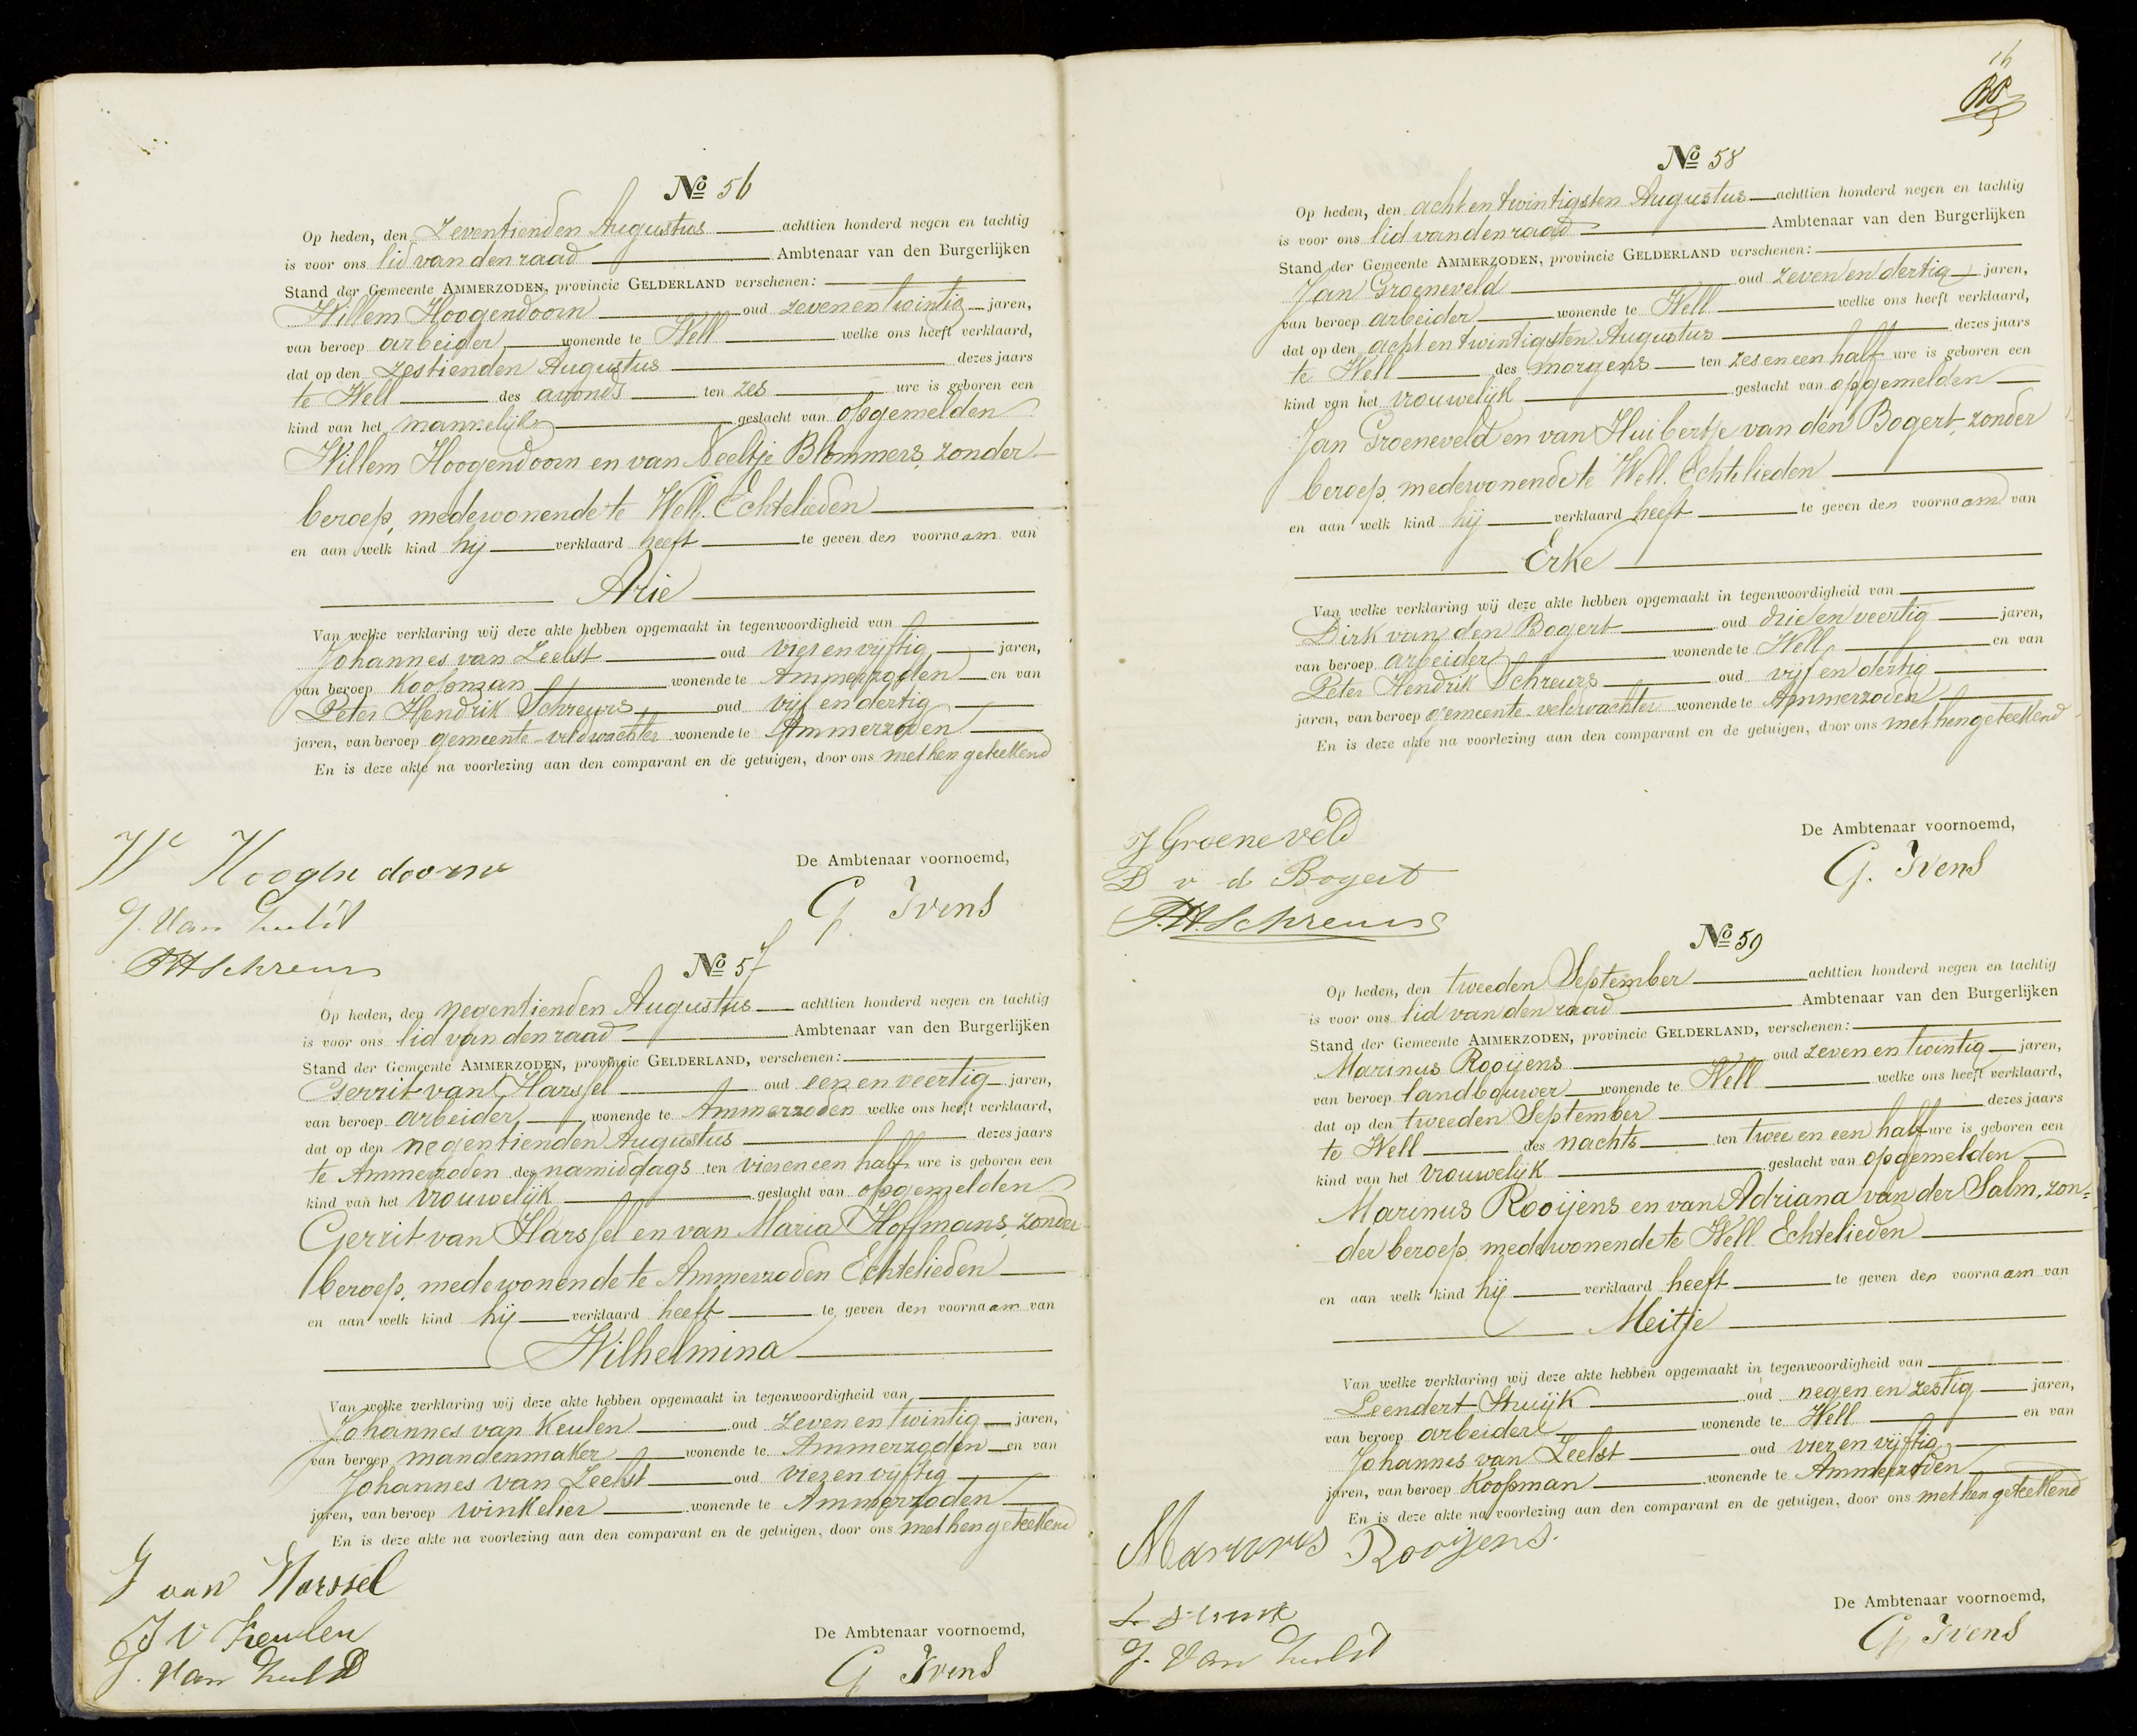 No 56
Op heden, den Zeventienden Augustus achttien honderd negen en tachtig
is voor ons lid van den raad Ambtenaar van den Burgerlijken
Stand der Gemeente AMMERZODEN, provincie GELDERLAND verschenen:
Willem Hoogendoorn oud zeven en twintig jaren,
van beroep arbeider wonende te Well welke ons heeft verklaard,
dat op den zestienden Augustus dezes jaars
te Well des avonds ten zes ure is geboren een
kind van het mannelijk geslacht van opgemelden
Willem Hoogendoorn en van Neeltje Blommers, zonder
beroep, mede wonende te Well. Echtelieden
en aan welk kind hij verklaard heeft te geven den voornaam van
Arie
Van welke verklaring wij deze akte hebben opgemaakt in tegenwoordigheid van
Johannes van Zeelst oud vier en vijftig jaren,
van beroep Koopman wonende te Ammerzoden en van
Peter Hendrik Schreurs oud vijf en dertig
jaren, van beroep gemeente-veldwachter wonende te Ammerzoden
En is deze akte na voorlezing aan den comparant en de getuigen, door ons met hen geteekend
De Ambtenaar voornoemd,
W Hoogendoorn
G. Ivens
J. Van Zeelst
PHSchreurs
No 57
Op heden, den negentienden Augustus achttien honderd negen en tachtig
is voor ons lid van den raad Ambtenaar van den Burgerlijken
Stand der Gemeente AMMERZODEN, provincie GELDERLAND, verschenen:
Gerrit van Harssel oud een en veertig jaren,
van beroep arbeider wonende te Ammerzoden welke ons heeft verklaard,
dat op den negentienden Augustus dezes jaars
te Ammerzoden des namiddags ten vier en een half ure is geboren een
kind van het vrouwelijk geslacht van opgemelden
Gerrit van Harssel en van Maria Hoffmans, zonder
beroep, mede wonende te Ammerzoden Echtelieden
en aan welk kind hij verklaard heeft te geven den voornaam van
Wilhelmina
Van welke verklaring wij deze akte hebben opgemaakt in tegenwoordigheid van
Johannes van Keulen oud zeven en twintig jaren,
van beroep mandenmaker wonende te Ammerzoden en van
Johannes van Zeelst oud vier en vijftig
jaren, van beroep winkelier wonende te Ammerzoden
En is deze akte na voorlezing aan den comparant en de getuigen, door ons met hen geteekend
van Harssel
J V Keulen
De Ambtenaar voornoemd,
J. Van Zeelst
G Ivens
16
No 58
Op heden, den acht en twintigsten Augustus achttien honderd negen en tachtig
is voor ons lid van den raad Ambtenaar van den Burgerlijken
Stand der Gemeente AMMERZODEN, provincie GELDERLAND verschenen:
Jan Groeneveld oud zeven en dertig jaren,
van beroep arbeider wonende te Well welke ons heeft verklaard,
dat op den acht en twintigsten Augustus dezes jaars
te Well des morgens ten zes en een half ure is geboren een
kind van het vrouwelijk geslacht van opgemelden
Jan Groeneveld en van Huibertje van den Bogert, zonder
beroep, mede wonende te Well. Echtelieden
en aan welk kind hij verklaard heeft te geven den voornaam van
Erke
Van welke verklaring wij deze akte hebben opgemaakt in tegenwoordigheid van
Dirk van den Bogert oud drie en veertig jaren,
van beroep arbeider wonende te Well en van
Peter Hendrik Schreurs oud vijf en dertig
jaren, van beroep gemeente-veldwachter wonende te Ammerzoden
En is deze akte na voorlezing aan den comparant en de getuigen, door ons met hen geteekend
J Groeneveld
De Ambtenaar voornoemd,
D v d Bogert
G. Ivens
P.H.Schreurs
No 59
Op heden, den tweeden September achttien honderd negen en tachtig
is voor ons lid van den raad Ambtenaar van den Burgerlijken
Stand der Gemeente AMMERZODEN, provincie GELDERLAND, verschenen:
Marinus Rooijens oud zeven en twintig jaren,
van beroep landbouwer wonende te Well welke ons heeft verklaard,
dat op den tweeden September dezes jaars
te Well des nachts ten twee en een half ure is geboren een
kind van het vrouwelijk geslacht van opgemelden
Marinus Rooijens en van Adriana van der Salm, zon=
der beroep, mede wonende te Well Echtelieden
en aan welk kind hij verklaard heeft te geven den voornaam van
Meitje
Van welke verklaring wij deze akte hebben opgemaakt in tegenwoordigheid van
Leendert Struijk oud negen en zestig jaren,
van beroep arbeider wonende te Well en van
Johannes van Zeelst oud vier en vijftig
jaren, van beroep Koopman wonende te Ammerzoden
En is deze akte na voorlezing aan den comparant en de getuigen, door ons met hen geteekend
Marinus Rooijens.
De Ambtenaar voornoemd,
L Struik
G Ivens
J. Van Zeelst